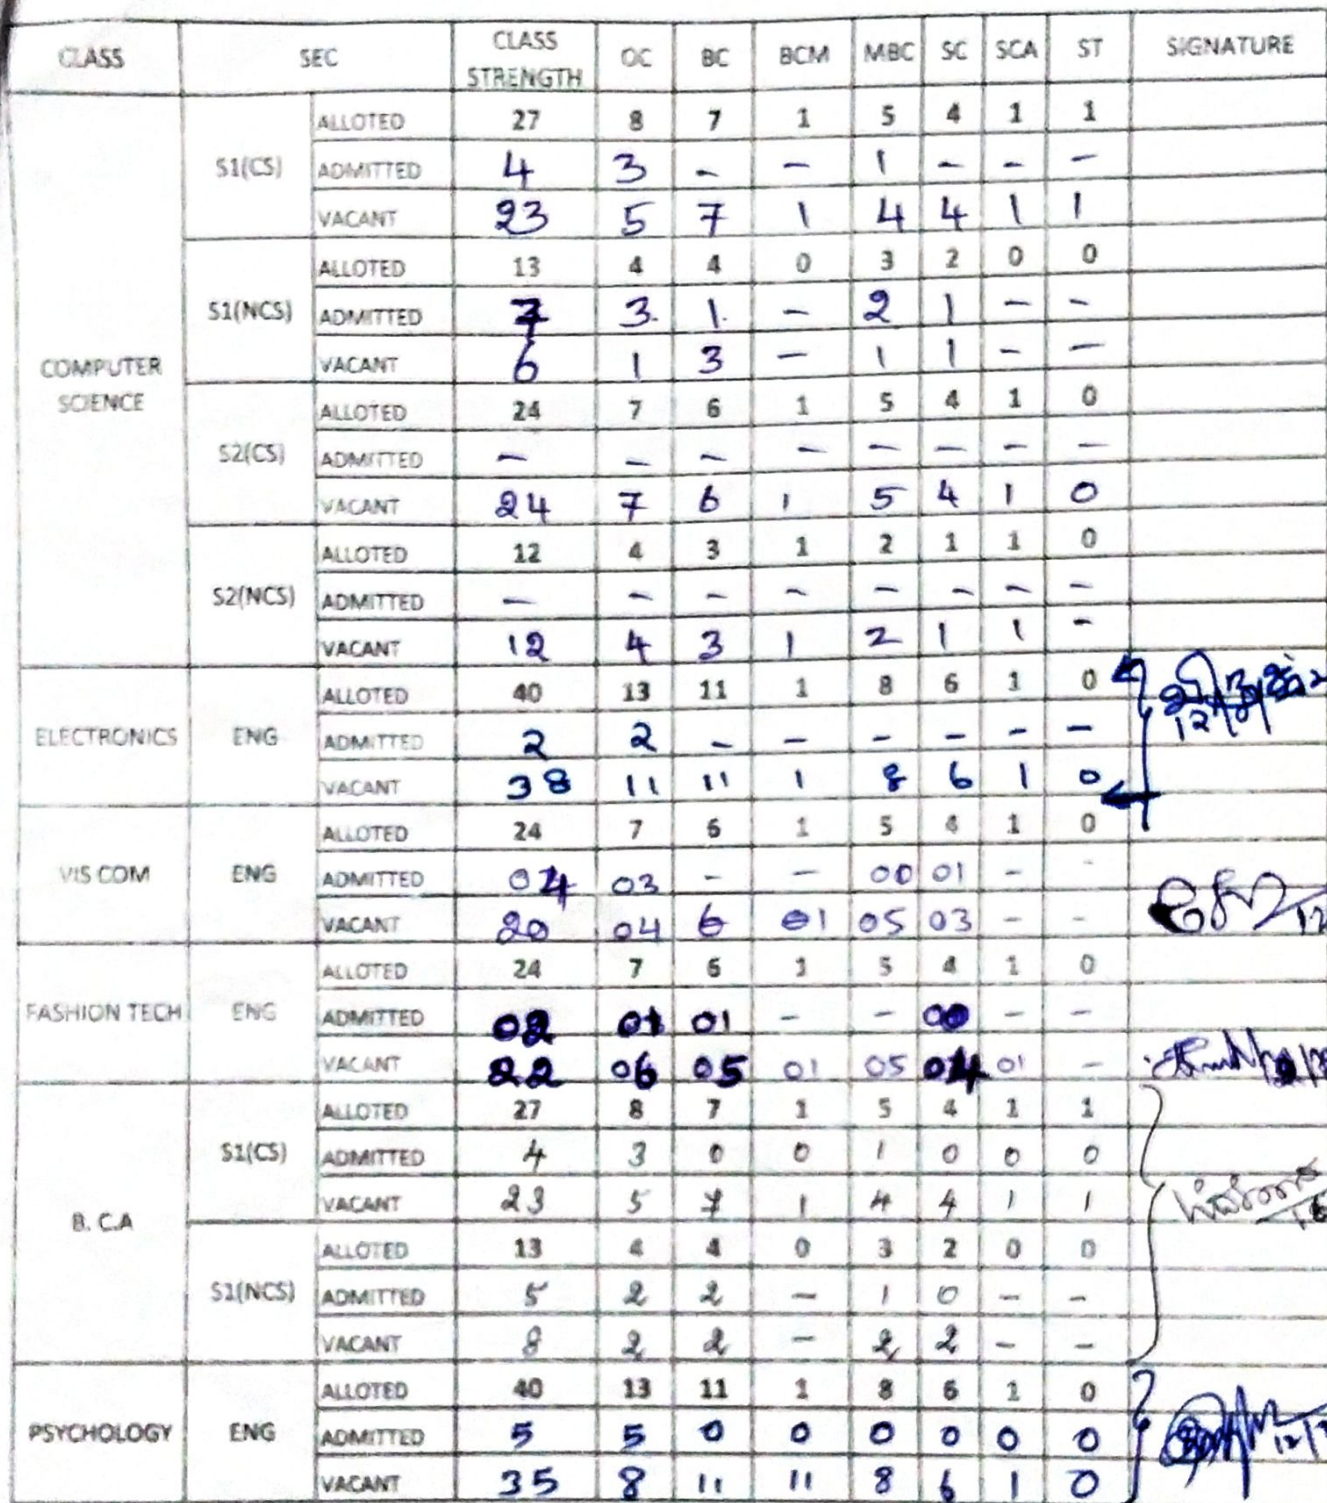 CLASS SEC CLASS STRENGTH OC BC BCM MBC SC SCA ST SIGNATURE
COMPUTER SCIENCE
S1(CS)
ALLOTED 27 8 7 1 5 4 1 1
ADMITTED 4 3 - - 1 - - -
VACANT 23 5 7 1 4 4 1 1
S1(NCS)
ALLOTED 13 4 4 0 3 2 0 0
ADMITTED 7 3 1 - 2 1 - -
VACANT 6 1 3 - 1 1 - -
S2(CS)
ALLOTED 24 7 6 1 5 4 1 0
ADMITTED - - - - - - - -
VACANT 24 7 6 1 5 4 1 0
S2(NCS)
ALLOTED 12 4 3 1 2 1 1 0
ADMITTED - - - - - - - -
VACANT 12 4 3 1 2 1 1 -
ELECTRONICS ENG
ALLOTED 40 13 11 1 8 6 1 0
ADMITTED 2 2 - - - - - -
VACANT 38 11 11 1 8 6 1 0
VIS COM ENG
ALLOTED 24 7 6 1 5 4 1 0
ADMITTED 04 03 - - 00 01 - -
VACANT 20 04 6 01 05 03 - -
FASHION TECH ENG
ALLOTED 24 7 6 1 5 4 1 0
ADMITTED 02 01 01 - - 00 - -
VACANT 22 06 05 01 05 04 01 -
B. C.A
S1(CS)
ALLOTED 27 8 7 1 5 4 1 1
ADMITTED 4 3 0 0 1 0 0 0
VACANT 23 5 7 1 4 4 1 1
S1(NCS)
ALLOTED 13 4 4 0 3 2 0 0
ADMITTED 5 2 2 - 1 0 - -
VACANT 8 2 2 - 2 2 - -
PSYCHOLOGY ENG
ALLOTED 40 13 11 1 8 6 1 0
ADMITTED 5 5 0 0 0 0 0 0
VACANT 35 8 11 11 8 6 1 0